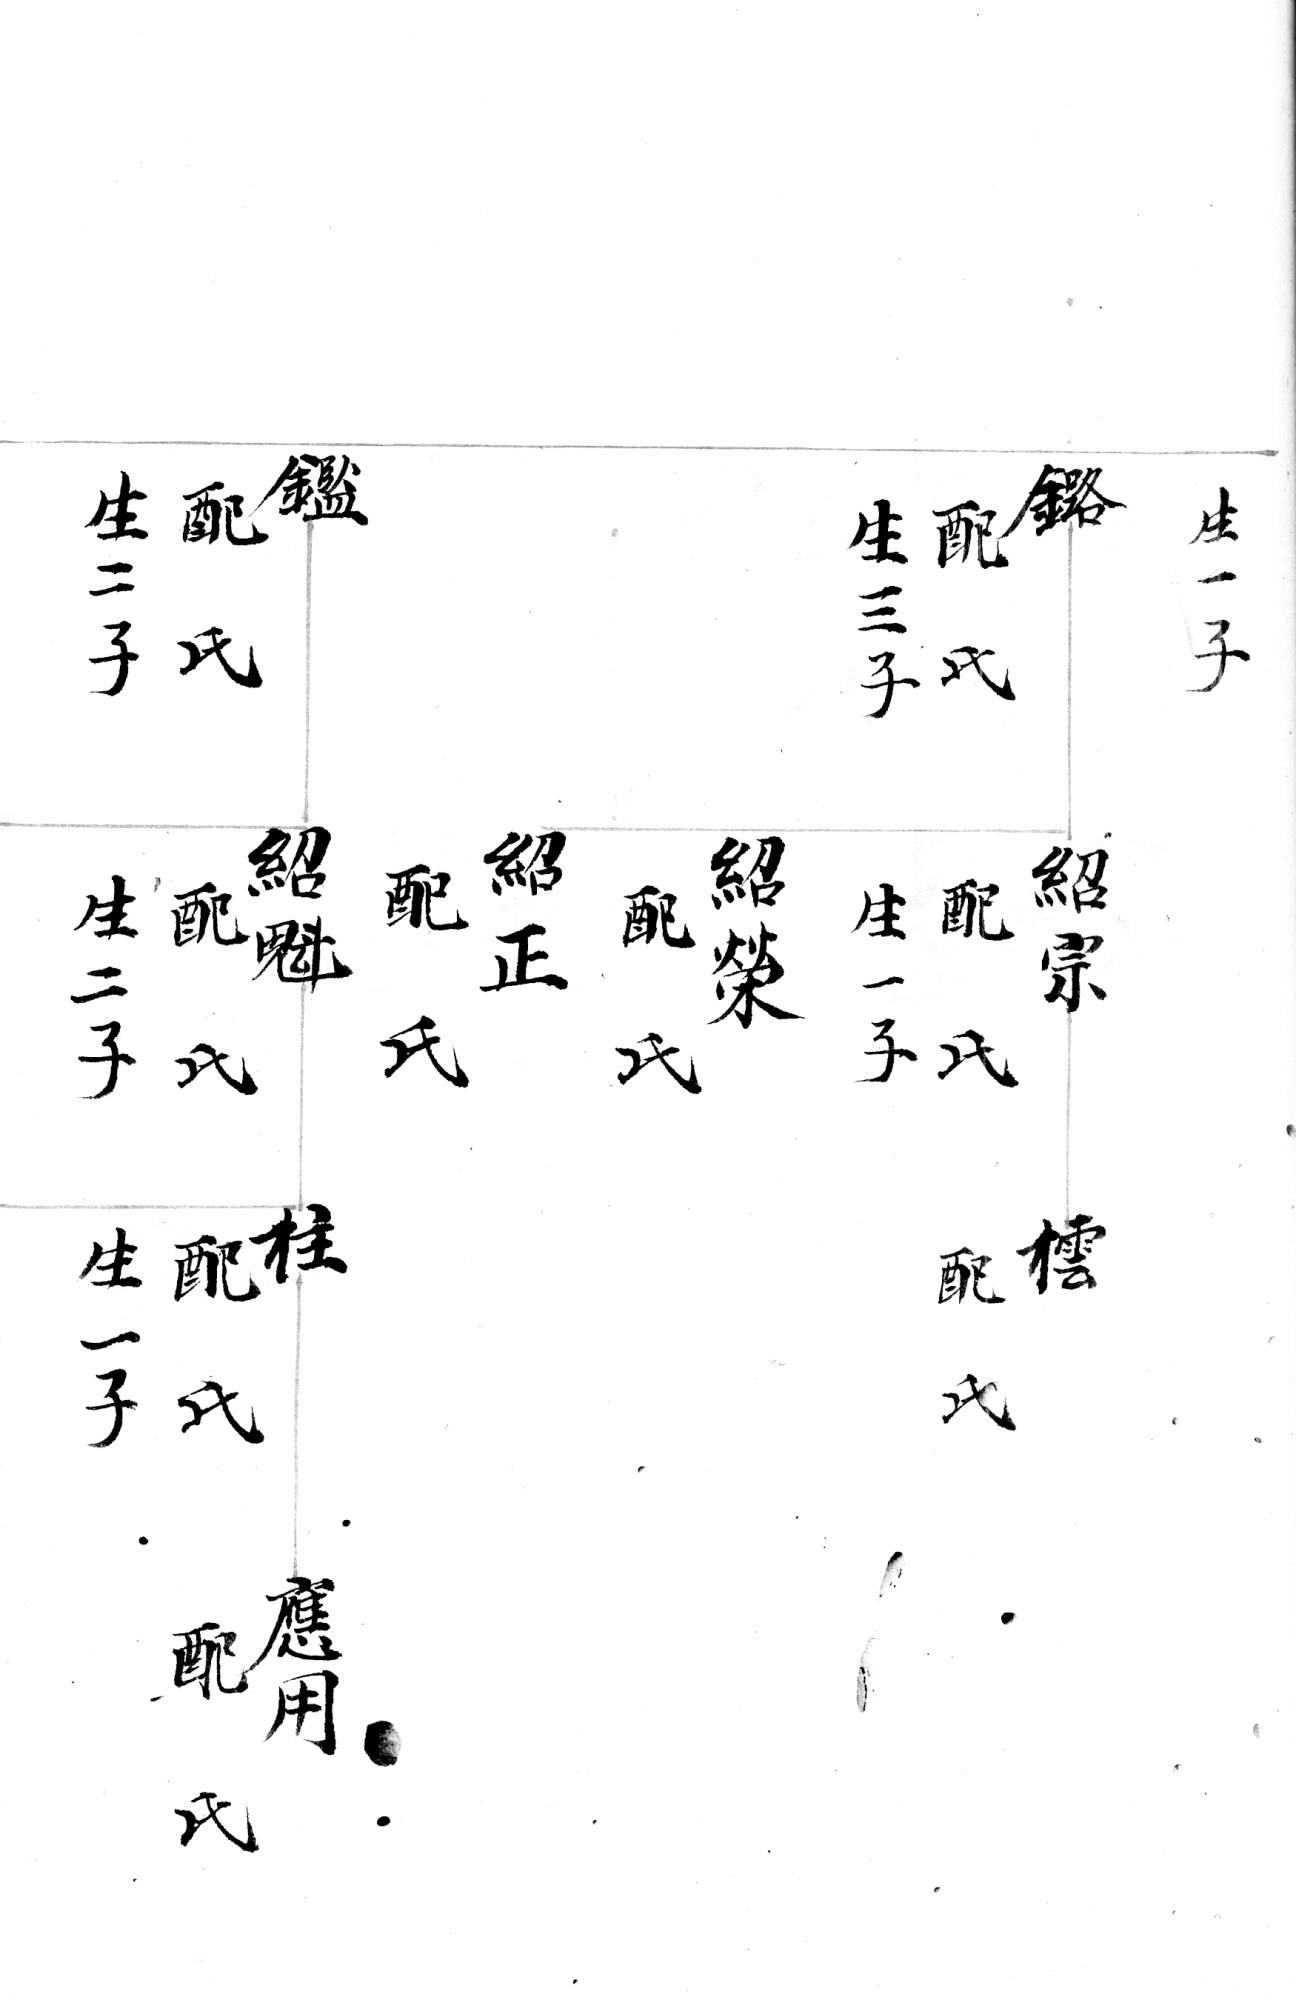 生一子
鉻
配 氏
生三子
鑑
配 氏
生二子
紹宗
配 氏
生一子
紹榮
配 氏
紹正
配 氏
紹魁
配 氏
生二子
橒
配 氏
柱
配 氏
生一子
應用
配 氏